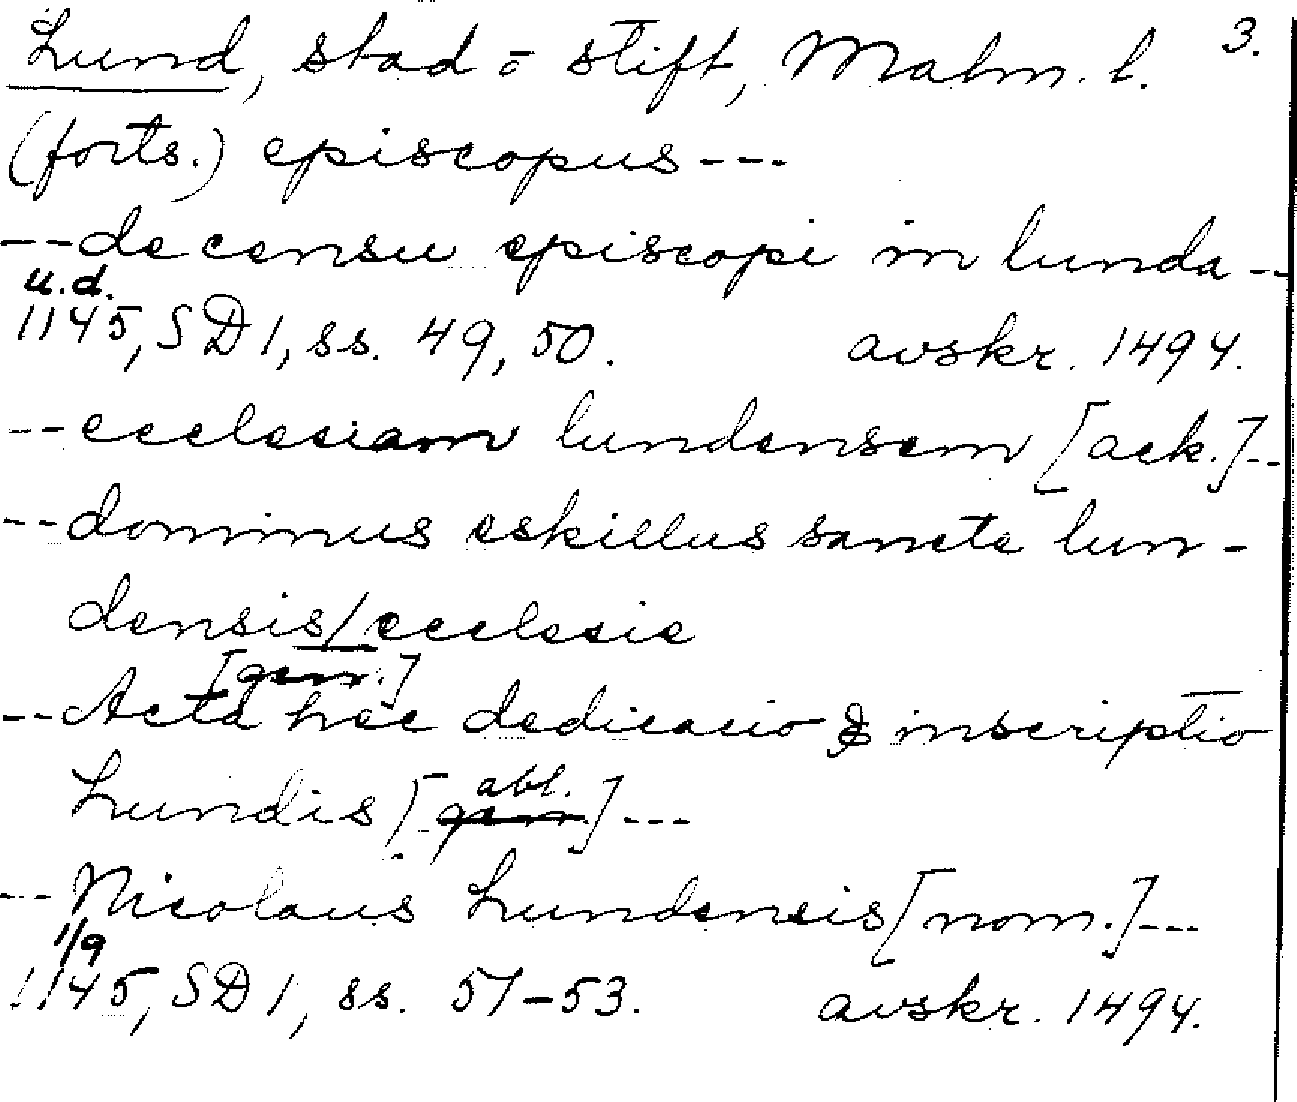 Lund, stad o stift, Malm. l. 3.
(forts.) episcopus ---
-- de censu episcopi in lunda --
u.d.
1145, SD 1, ss. 49, 50. avskr. 1494.
-- ecclesiam lundensem [ack.] --
-- dominus eskillus sancte lun-
densis/ecclesie
[gen.]
-- Acta hec dedicacio & inscriptio
Lundis [gen. abl.] ---
-- Nicolaus Lundensis [nom.] ---
1/9
1145, SD 1, ss. 51-53. avskr. 1494.